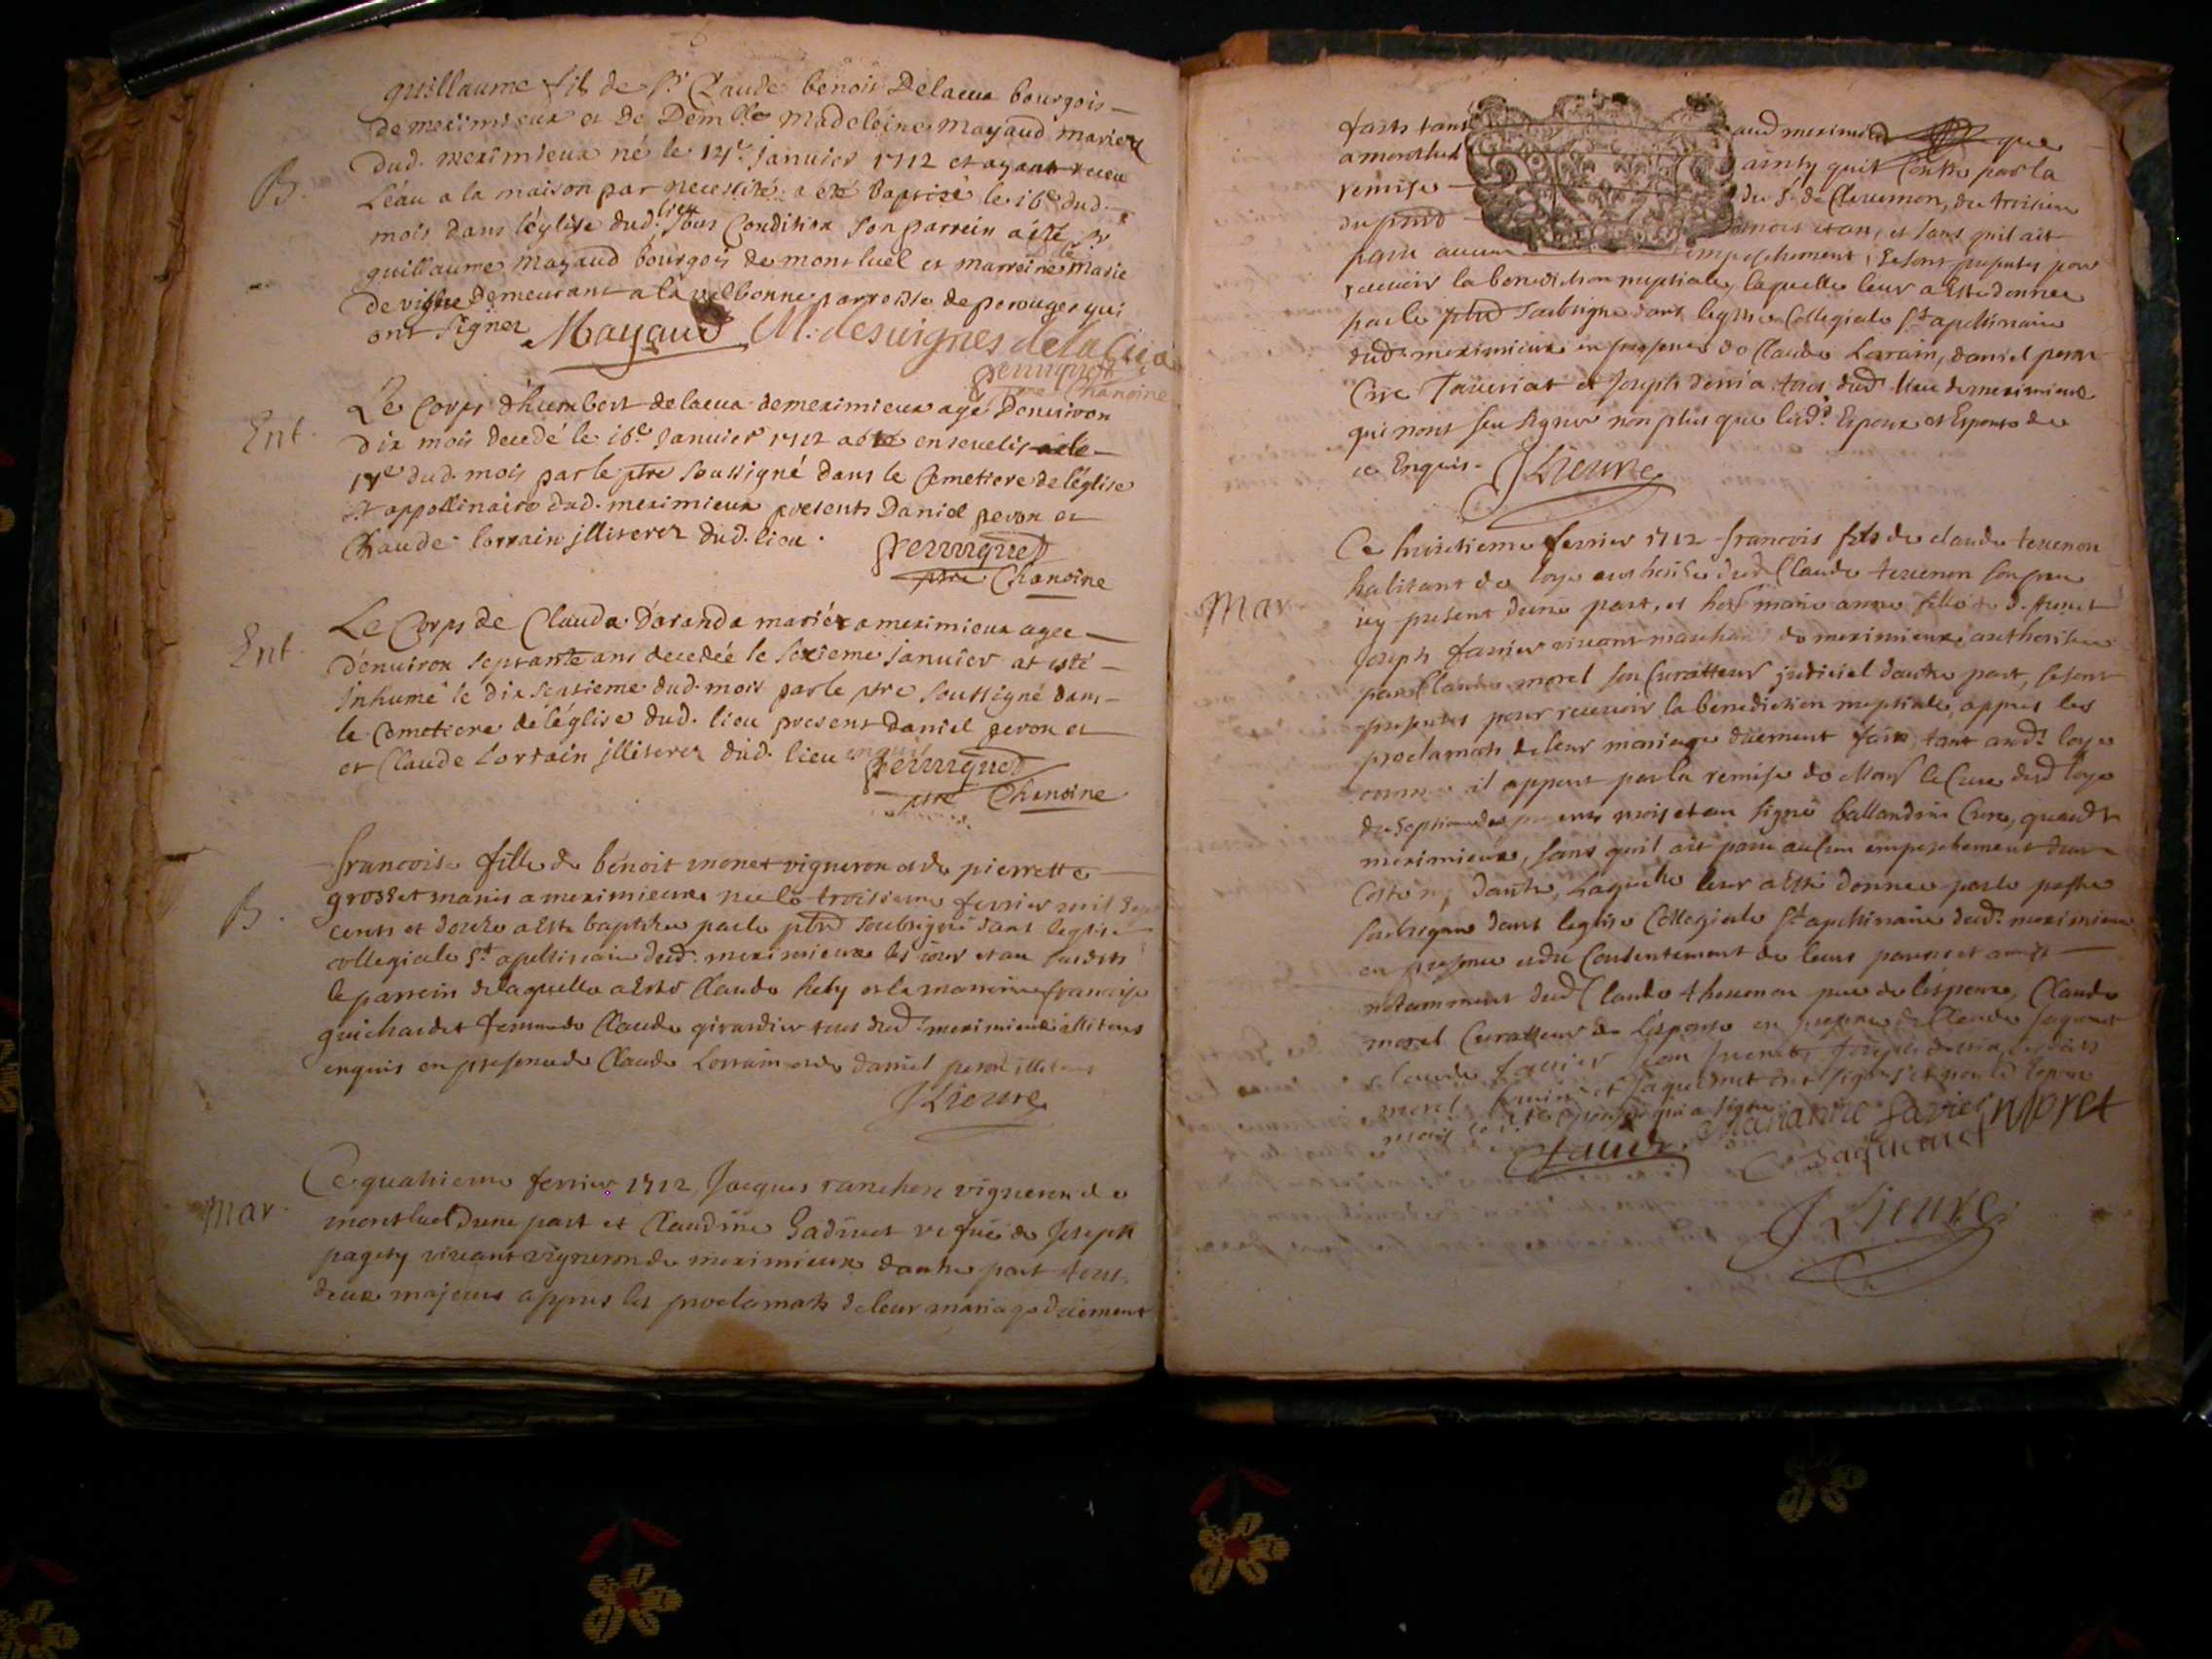 guillaume fils de Sr Claude benoit Delacua bourgois
de meximieux et de Demlle Madeleine Mayaud mariez
dud. meximieux né le 14e janvier 1712 et ayant receu
B. l'éau a la maison par necessité a eté baptisé le 16e dud.
mois dans l'église dud. lieu sous condition son parrein a été Sr
guillaume mayaud bourgois de montluel et marreine dlle marie
de vigne demeurant a la valbonne parroisse de perouges qui
ont signez Mayaud M: desuignes delaCua
perruquet
ptre Chanoine
Ent. Le Corps d'humbert delacua de meximieux agé d'enuiron
dix mois decedé le 16e januier 1712 a eté enseuelis le
17e dud. mois par le ptre soussigné dans le Cemetiere de l'église
St appollinaire dud. meximieux presents Daniel peron et
Claude lorrain jlliterez dud. lieu.
perruquet
ptre Chanoine
Ent. Le Corps de Clauda daranda mariéz a meximieux agee
d'enuiron septante ans decedée le sexieme januier at esté
inhumé le dix septieme dud. mois par le ptre soussigné dans
le Cemetiere de l'église dud. lieu present daniel peron et
et Claude Lorrain jlliterez dud. lieu enquis
perruquet
ptre Chanoine
francoise fille de bénoit monet vigneron et de pierrette
grosset mariés a meximieux née le troisieme feurier mil sept
B. cents et douze a esté baptisée par le ptre soubsigné dans leglise
collegiale St apollinaire dud. meximieux les iour et an susdits
le parrein de laquelle a esté Claude hely et la marreine francoise
guichardet femme de Claude girardier tous dud. meximieux illiteres
enquis en presence de Claude Lorrain et de daniel peron illiteres
JLieure
Mar. Ce quatrieme feurier 1712, Jacques ranchere vigneron de
montluel d'une part et Claudine Gadinet vefue de Joseph
pagety viuant vigneron de meximieux dautre part tous
deux majeurs appres les proclamats de leur mariage düement
faits tant aud meximieux que
a montluel ainsy quil Conste par la
remise du Sr de Cleremon, du troisieme
du pnt mois et an, et sans quil ait
paru aucun empeschement, se sont presentes pour
receuoir la benediction nuptiale, laquelle leur a esté donnee
par le ptre soubsigné dans leglise Collegiale St apollinaire
dud. meximieux en presence de Claude Lorrain, daniel peron
Cire Taueriat et Joseph derria tous dud. lieu de meximieux
qui nont sceu signer non plus que lesd. Espoux et Espouse de
ce Enquis. JLieure
Ce huictieme feurier 1712 francois fils de claude teuenon
habitant de loye authorisé dud Claude teuenon son pere
Mar. icy present dune part, et marie anne fille de
Joseph fauier viuant marchand de meximieux authorisee
par Claude morel son Curatteur judiciel dautre part, se sont
presentes pour receuoir la benediction nuptiale, appres les
proclamats de leur mariage düement faits, tant aud. loye
comme il appert par la remise de Monsr le Cure dud loye
du septieme du present mois et an signé ballandrin Cure, quaudt
meximieux, sans quil ait paru aulcun empeschement dun
Costé ny dautre, Laquelle leur a esté donnee par le prestre
soubsigné dans leglise Collegiale St apollinaire dud. meximieux
en presence et du Consentement de leurs parents et amis
notamment dud Claude theuenon pere de l'espoux, Claude
morel Curatteur de L'espouse en presence de Claude Jaquemet
Claude fauier Jean Joseph derria
morel et Jaquemet ont signé
mais qui a signé
fauier Marianne fauier Moret
Jaquemet
JLieure